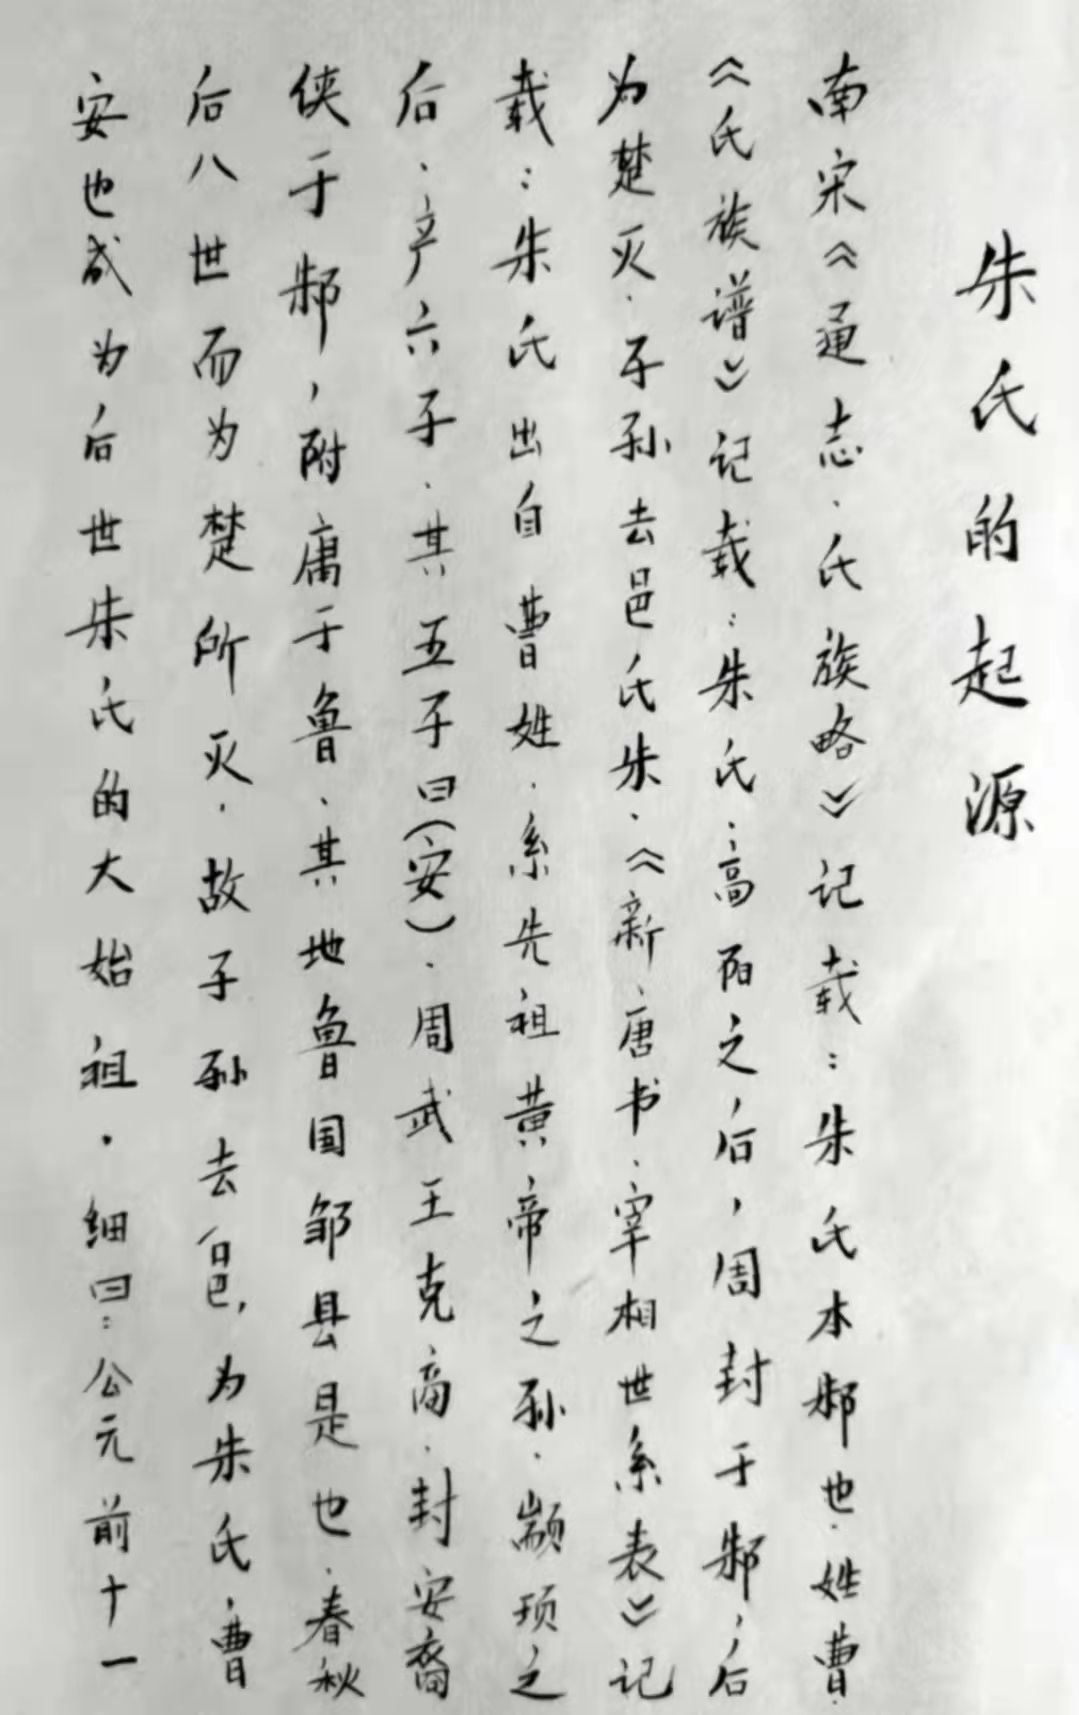 朱氏的起源
南宋《通志·氏族略》记载：朱氏本邾也·姓曹·
《氏族谱》记载：朱氏·高阳之后，周封于邾，后
为楚灭·子孙去邑氏朱·《新·唐书·宰相世系表》记
载：朱氏出自曹姓·系先祖黄帝之孙·颛顼之
后·产六子·其五子曰(安)·周武王克商·封安裔
侠于邾，附庸于鲁、其地鲁国邹县是也·春秋
后八世而为楚所灭·故子孙去邑，为朱氏·曹
安也成为后世朱氏的大始祖·细曰：公元前十一